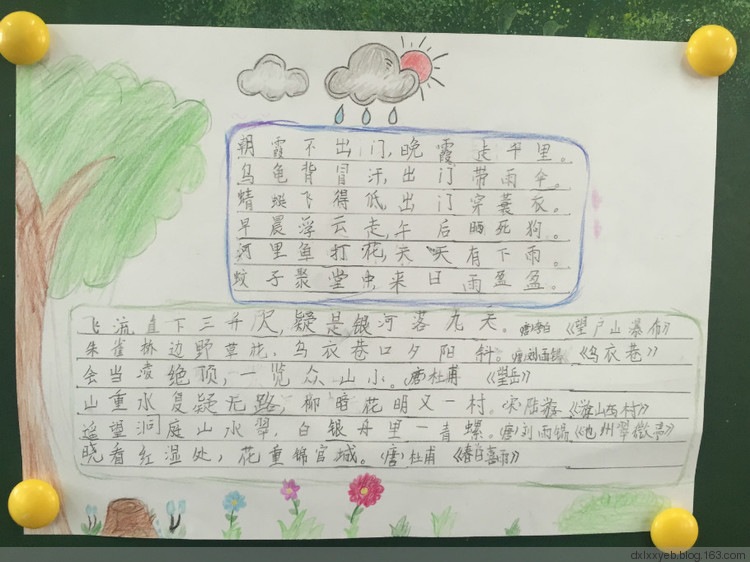 朝霞不出门,晚霞走千里。
乌龟背冒汗,出门带雨伞。
蜻蜓飞得低,出门穿蓑衣。
早晨浮云走,午后晒死狗。
河里鱼打花,天天有下雨。
蚊子聚堂中来日雨盈盈。
飞流直下三千尺,疑是银河落九天。唐李白《望庐山瀑布》
朱雀桥边野草花,乌衣巷口夕阳斜。唐刘禹锡《乌衣巷》
会当凌绝顶,一览众山小。(唐)杜甫《望岳》
山重水复疑无路,柳暗花明又一村。(宋)陆游《游山西村》
遥望洞庭山水翠,白银舟里一青螺。(唐)刘雨锡
晓看红湿处,花重锦官城。(唐)杜甫《春日喜雨》
dxlxxyeb.blog.163.com